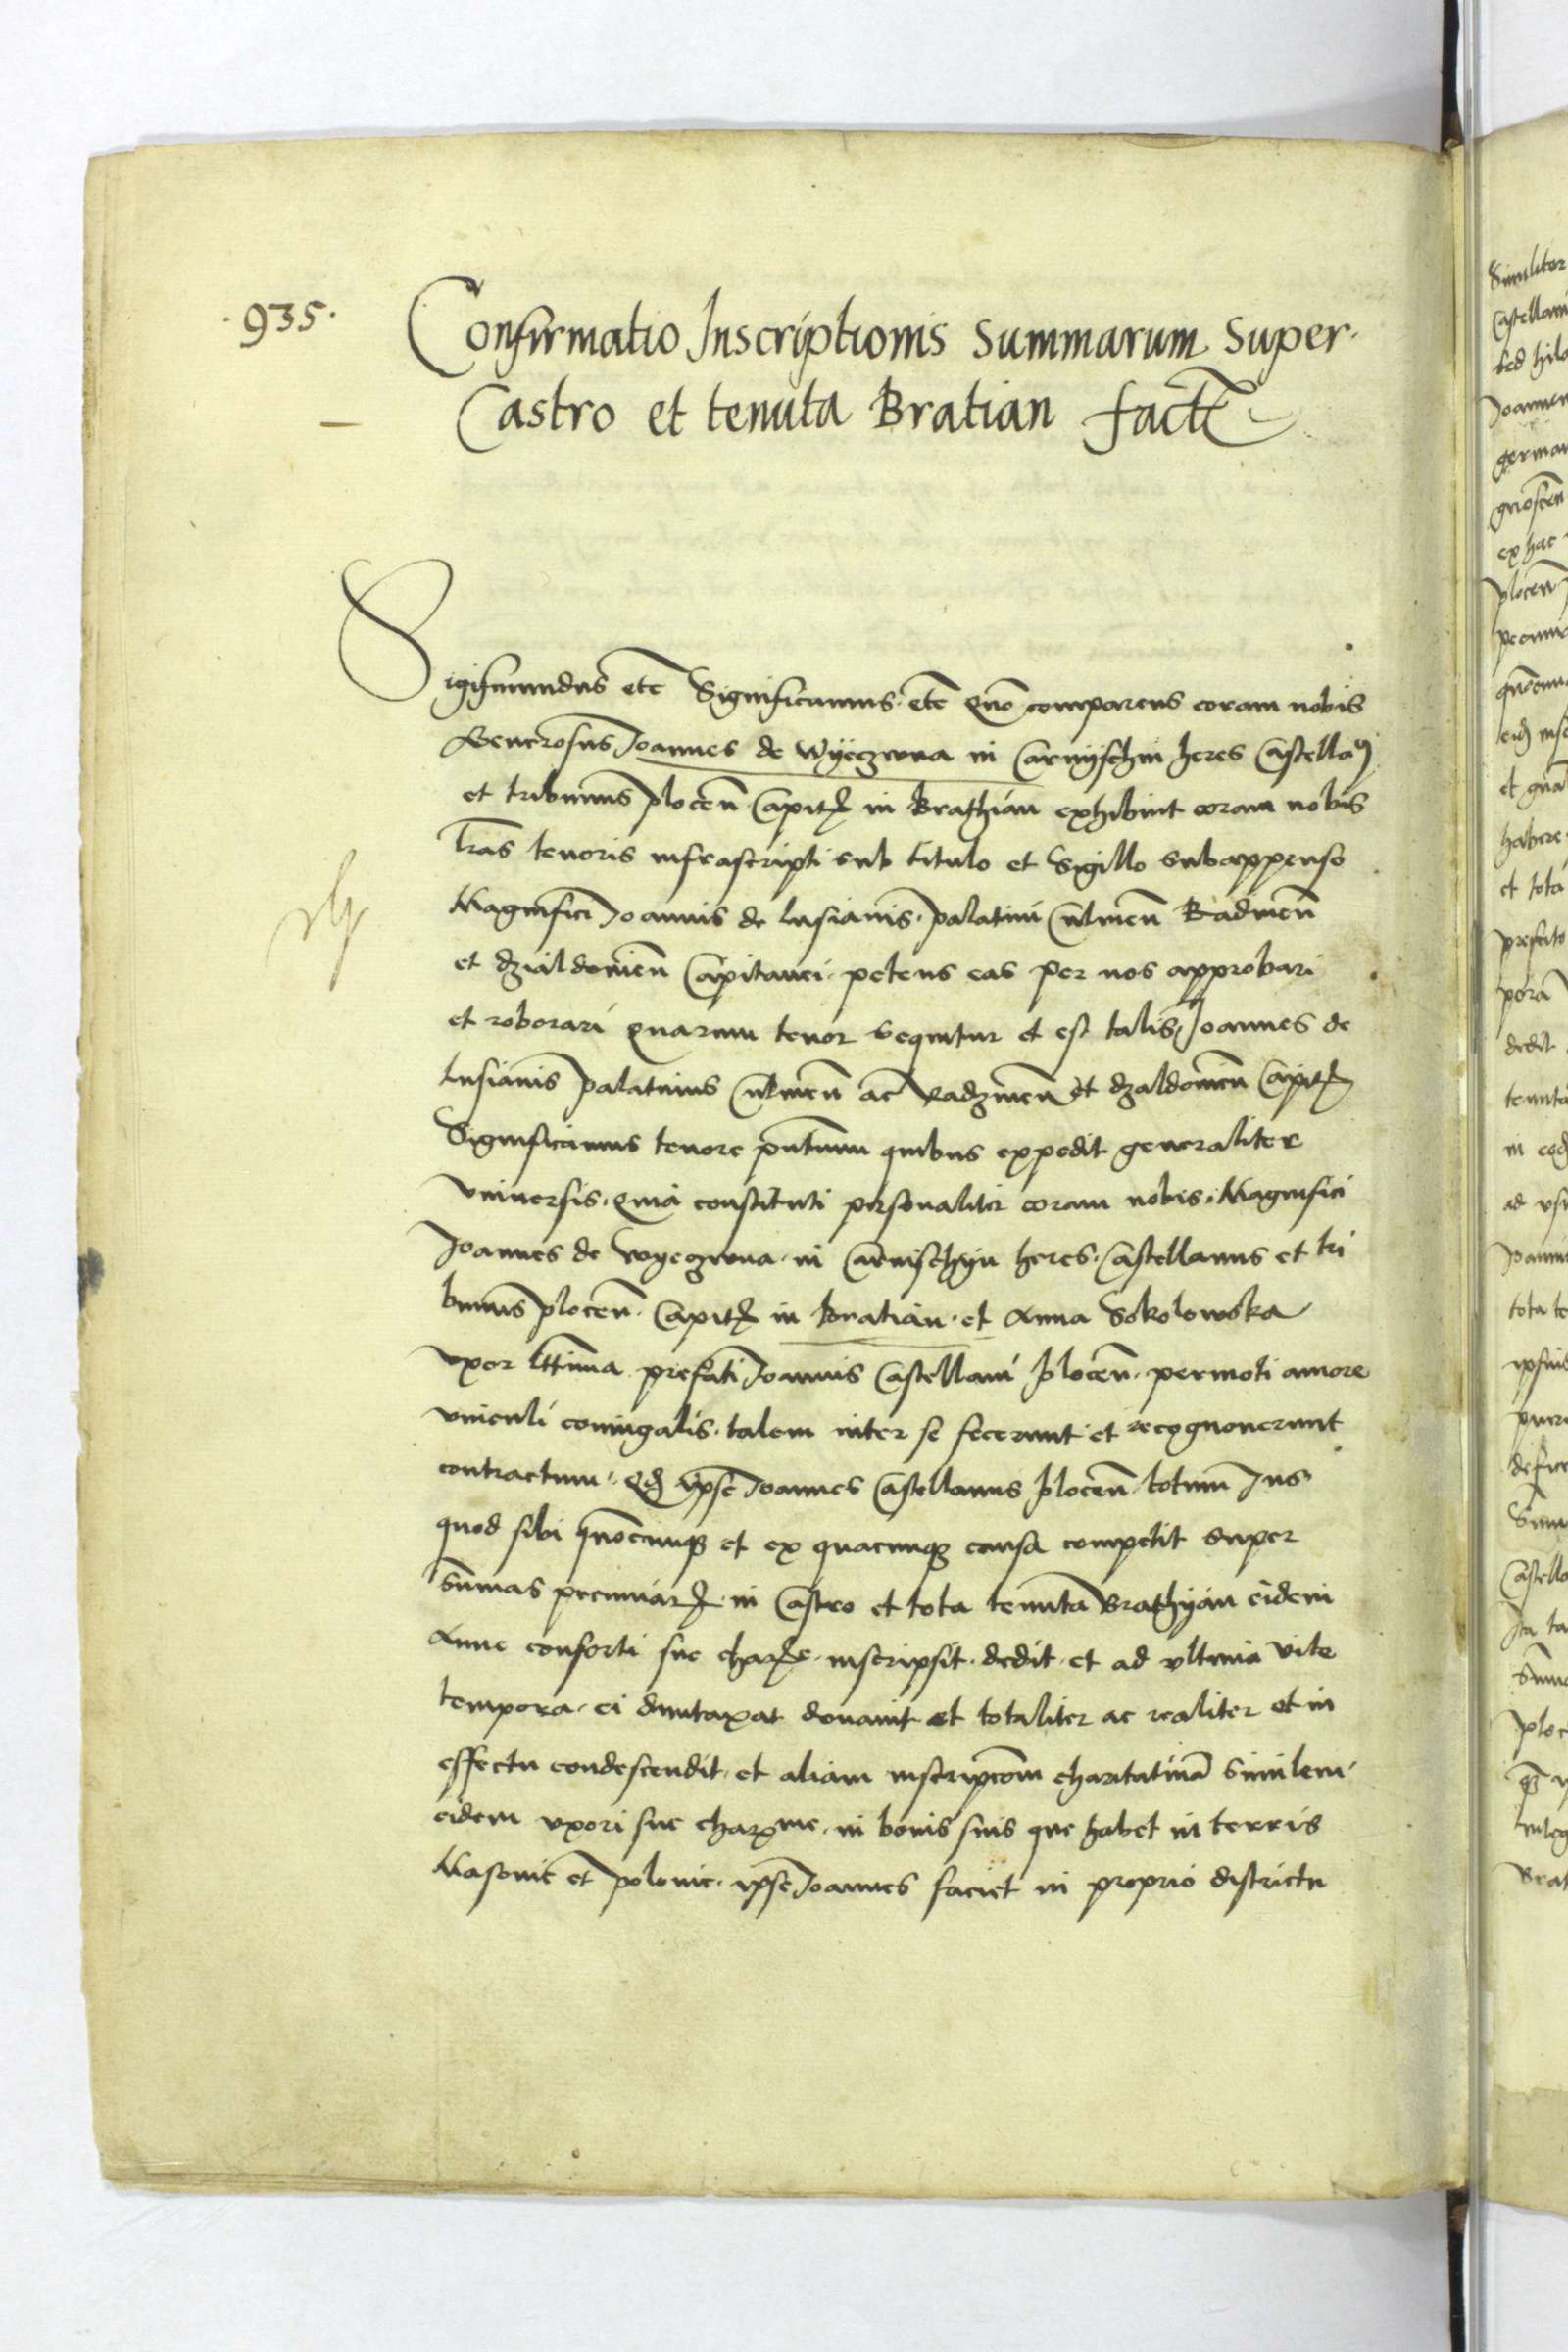 ·935·
Confirmatio Inscriptionis Summarum Super
Castro et tenuta Bratian factē
Sigismundus etc̄ Significamus etc̄ Quō comparens coram nobis
Generosus Joannes de Wyeczwna in Carnyschin heres Castellan9
et tribunus plocen̄ Capit in Brathian exhibuit coram nobis
lr̄as tenoris infrascripti sub titulo et Sigillo subappenso
Magnifici Joannis de lusianis palatini Culmen̄ Radinen̄
et dzialdovien̄ Capitanei petens eas per nos approbari
et roborari quarum tenor sequitur et est talis Joannes de
lusianis palatinus Culmen̄ ac Radzinen̄ et dzaldovien̄ Capit
Significamus tenore pn̄tium quibus expedit generaliter
vniuersis quia constituti personaliter coram nobis Magnifici
Joannes de wyeczwna in Carnischyn heres Castellanus et tri
bunus plocen̄ Capit in Bratian et Anna Sokolowska
vxor lttima prefati Joannis Castellani plocen̄ permoti amore
vinculi coniugalis talem inter se fecerunt et recognouerunt
contractum Qd ipse Joannes Castellanus plocen̄ totum Jus
quod sibi quōcunq et ex quacunq causa competit super
sum̄as pecuniar in Castro et tota tenuta Brathyan eidem
Anne consorti sue char inscripsit dedit et ad vltima vite
tempora ei duntaxat donauit et totaliter ac realiter et in
effectu condescendit et aliam inscripcōm charitatiuā similem
eidem vxori sue charme in bonis suis que habet in terris
Masouie et polonie ipse Joannes faciet in proprio districtu
Similiter
Castellani
Joannem
german
ex hac
plocen̄
habere
et tota
dedit
tenuta
ipsius